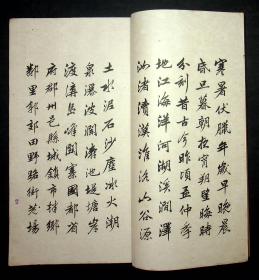 寒暑伏臘年歲早晚晨
昏旦暮朝夜宵朔望晦時
分刻昔古今昨頃孟仲季
地江海洋河湖溪澗澤
渚瀆漠淮洛山谷源
土水泥石沙塵冰火潮
泉瀑波瀾池堤塘岸
渡島峰寨國都省
府郡州邑縣城鎮市村鄉
鄰里郭郊田野路街場